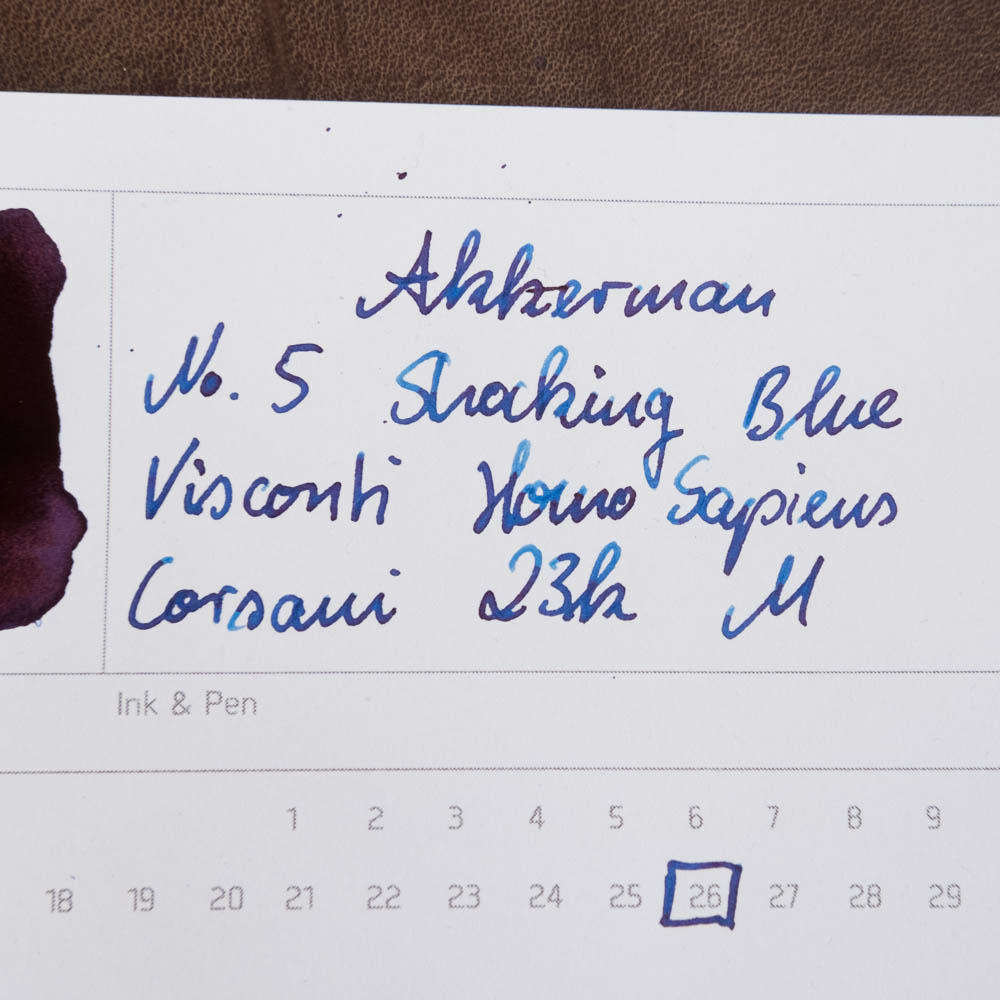 Akkerman
No. 5 Shocking Blue
Visconti Homo Sapiens
Corsani 23k M
Ink & Pen
1 2 3 4 5 6 7 8 9
18 19 20 21 22 23 24 25 26 27 28 29